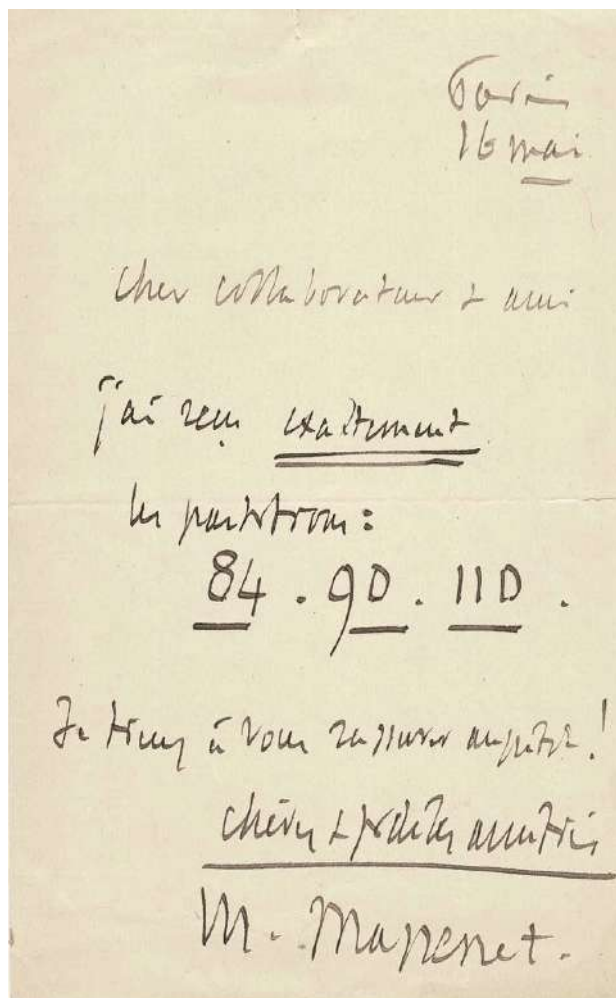 Paris
16 mai
Cher collaborateur & ami
j'ai reçu exactement
les partitions :
84 . 90 . 110 .
Je tiens à vous rassurer !
chères & fidèles amitiés
M. Massenet.